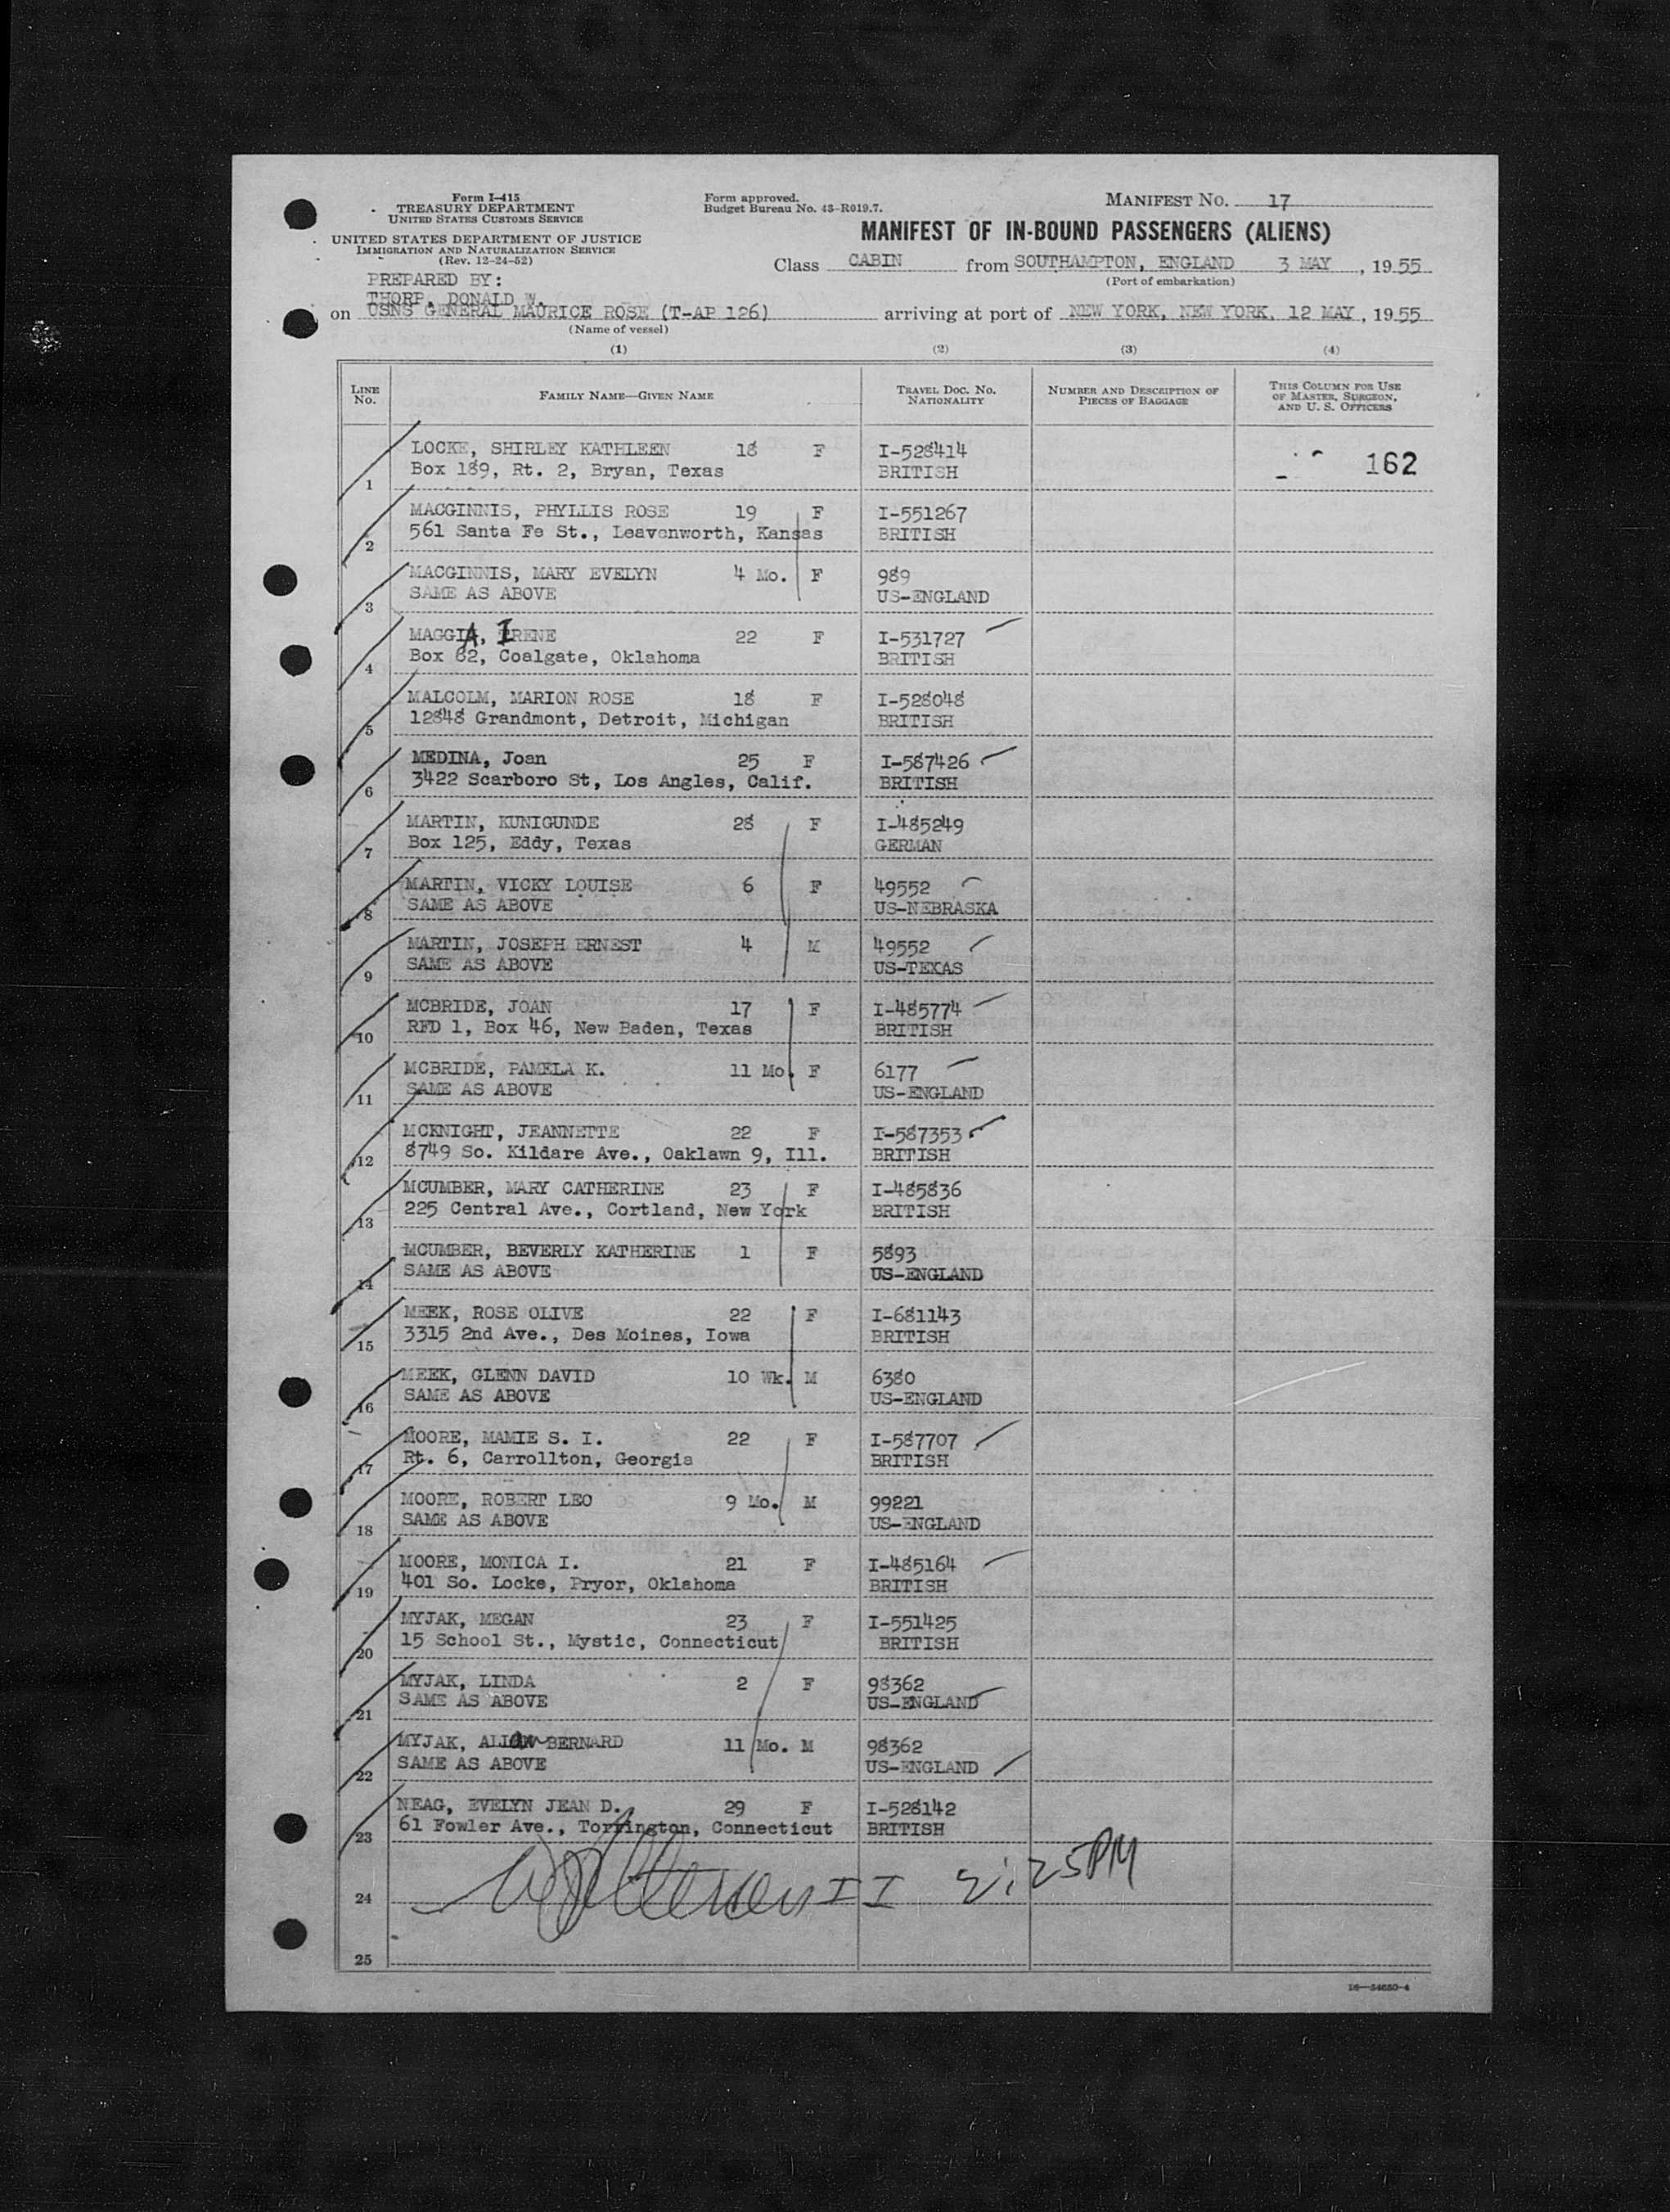 Form I-415
TREASURY DEPARTMENT
UNITED STATES CUSTOMS SERVICE
UNITED STATES DEPARTMENT OF JUSTICE
IMMIGRATION AND NATURALIZATION SERVICE
(Rev. 12-24-52)
Form approved.
Budget Bureau No. 43-R019.7.
MANIFEST No. 17
MANIFEST OF IN-BOUND PASSENGERS (ALIENS)
Class CABIN from SOUTHAMPTON, ENGLAND 3 MAY, 1955
(Port of embarkation)
PREPARED BY:
THORP, DONALD W.
on USNS GENERAL MAURICE ROSE (T-AP 126) arriving at port of NEW YORK, NEW YORK, 12 MAY, 1955
(Name of vessel)
(1) (2) (3) (4)
LINE No. FAMILY NAME—GIVEN NAME TRAVEL DOC. No. NATIONALITY NUMBER AND DESCRIPTION OF PIECES OF BAGGAGE THIS COLUMN FOR USE OF MASTER, SURGEON, AND U. S. OFFICERS
LOCKE, SHIRLEY KATHLEEN 18 F I-528414 162
1 Box 189, Rt. 2, Bryan, Texas BRITISH
MACGINNIS, PHYLLIS ROSE 19 F I-551267
2 561 Santa Fe St., Leavenworth, Kansas BRITISH
MACGINNIS, MARY EVELYN 4 Mo. F 989
3 SAME AS ABOVE US-ENGLAND
MAGGIA, IRENE 22 F I-531727
4 Box 82, Coalgate, Oklahoma BRITISH
MALCOLM, MARION ROSE 18 F I-528048
5 12848 Grandmont, Detroit, Michigan BRITISH
MEDINA, Joan 25 F I-587426
6 3422 Scarboro St, Los Angles, Calif. BRITISH
MARTIN, KUNIGUNDE 28 F I-485249
7 Box 125, Eddy, Texas GERMAN
MARTIN, VICKY LOUISE 6 F 49552
8 SAME AS ABOVE US-NEBRASKA
MARTIN, JOSEPH ERNEST 4 M 49552
9 SAME AS ABOVE US-TEXAS
MCBRIDE, JOAN 17 F I-485774
10 RFD 1, Box 46, New Baden, Texas BRITISH
MCBRIDE, PAMELA K. 11 Mo. F 6177
11 SAME AS ABOVE US-ENGLAND
MCKNIGHT, JEANNETTE 22 F I-587353
12 8749 So. Kildare Ave., Oaklawn 9, Ill. BRITISH
MCUMBER, MARY CATHERINE 23 F I-485836
13 225 Central Ave., Cortland, New York BRITISH
MCUMBER, BEVERLY KATHERINE 1 F 5893
14 SAME AS ABOVE US-ENGLAND
MEEK, ROSE OLIVE 22 F I-681143
15 3315 2nd Ave., Des Moines, Iowa BRITISH
MEEK, GLENN DAVID 10 Wk. M 6380
16 SAME AS ABOVE US-ENGLAND
MOORE, MAMIE S. I. 22 F I-587707
17 Rt. 6, Carrollton, Georgia BRITISH
MOORE, ROBERT LEO 9 Mo. M 99221
18 SAME AS ABOVE US-ENGLAND
MOORE, MONICA I. 21 F I-485164
19 401 So. Locke, Pryor, Oklahoma BRITISH
MYJAK, MEGAN 23 F I-551425
20 15 School St., Mystic, Connecticut BRITISH
MYJAK, LINDA 2 F 98362
21 SAME AS ABOVE US-ENGLAND
MYJAK, BERNARD 11 Mo. M 98362
22 SAME AS ABOVE US-ENGLAND
NEAG, EVELYN JEAN D. 29 F I-528142
23 61 Fowler Ave., Torrington, Connecticut BRITISH
24 II 2:25PM
25
16—54650-4